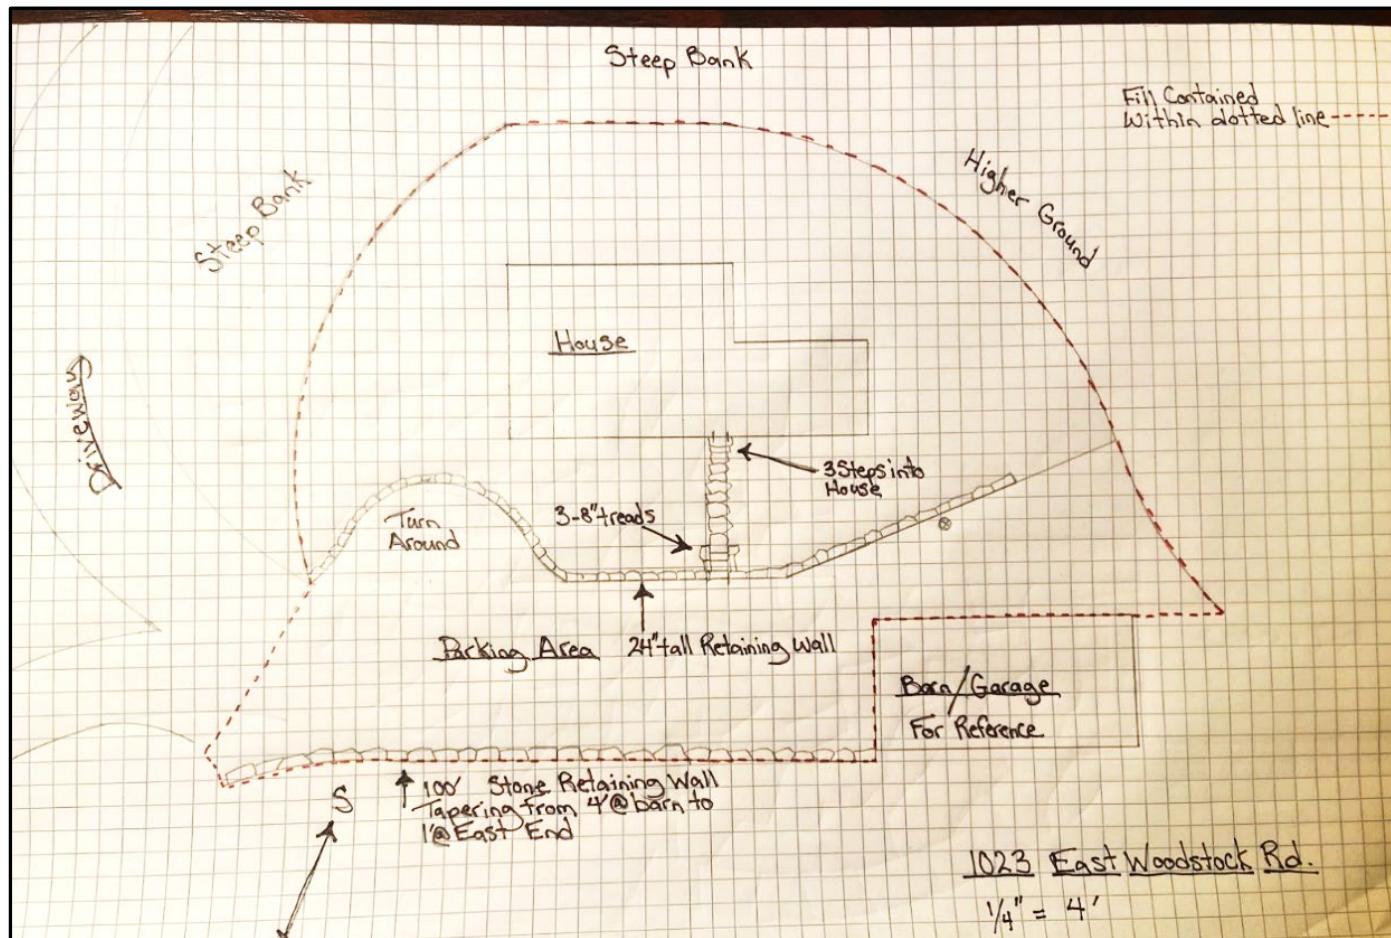 Steep Bank
Fill Contained
Within dotted line
Higher Ground
Steep Bank
House
Driveway
3 Steps into
House
3-8" treads
Turn
Around
Parking Area
24" tall Retaining Wall
Barn/Garage
For Reference
100' Stone Retaining Wall
Tapering from 4'@ barn to
1'@ East End
S
1023 East Woodstock Rd.
1/4" = 4'